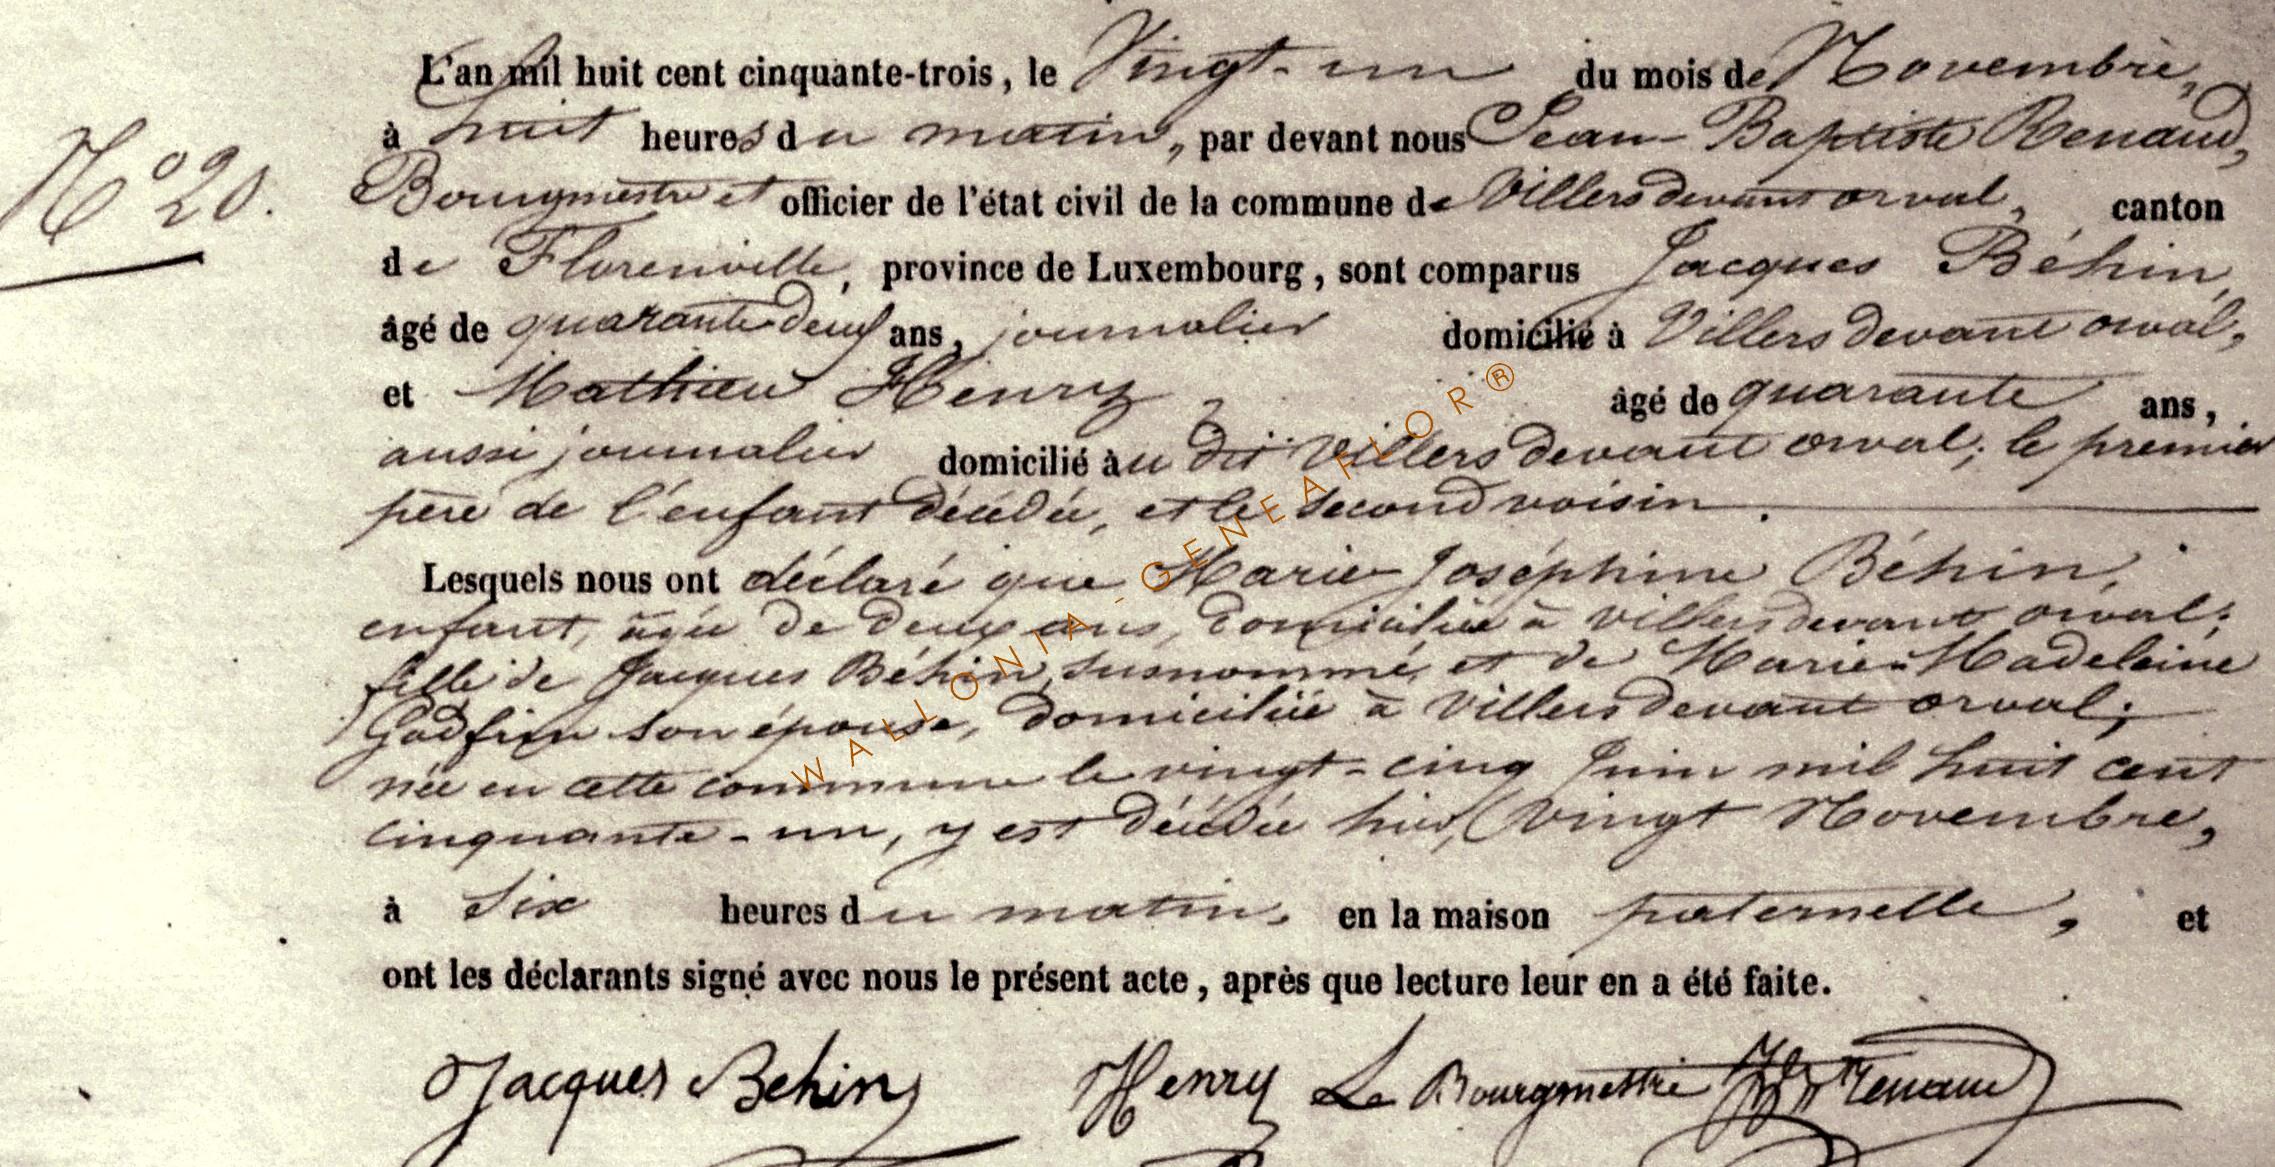 L'an mil huit cent cinquante-trois, le Vingt-un du mois de Novembre,
à huit heures du matin, par devant nous Jean-Baptiste Renaud,
N° 20.
Bourgmestre et officier de l'état civil de la commune de Villers devant orval, canton
de Florenville, province de Luxembourg, sont comparus Jacques Béhin,
âgé de quarante deux ans, journalier domicilié à Villers devant orval,
et Mathieu Henry, âgé de quarante ans,
aussi journalier domicilié au dit Villers devant orval; le premier
père de l'enfant décédée, et le second voisin.
Lesquels nous ont déclaré que Marie-Joséphine Béhin,
enfant, âgée de deux ans, domiciliée à villers devant orval;
fille de Jacques Béhin, susnommé, et de Marie-Madeleine
son épouse, domiciliée à Villers devant orval;
née en cette commune le vingt-cinq Juin mil huit cent
cinquante-un, y est décédée hier, vingt Novembre,
à six heures du matin, en la maison paternelle, et
ont les déclarants signé avec nous le présent acte, après que lecture leur en a été faite.
Jacques Behin Henry Le Bourgmestre Renaud
WALLONIA-GENEAFLOR®